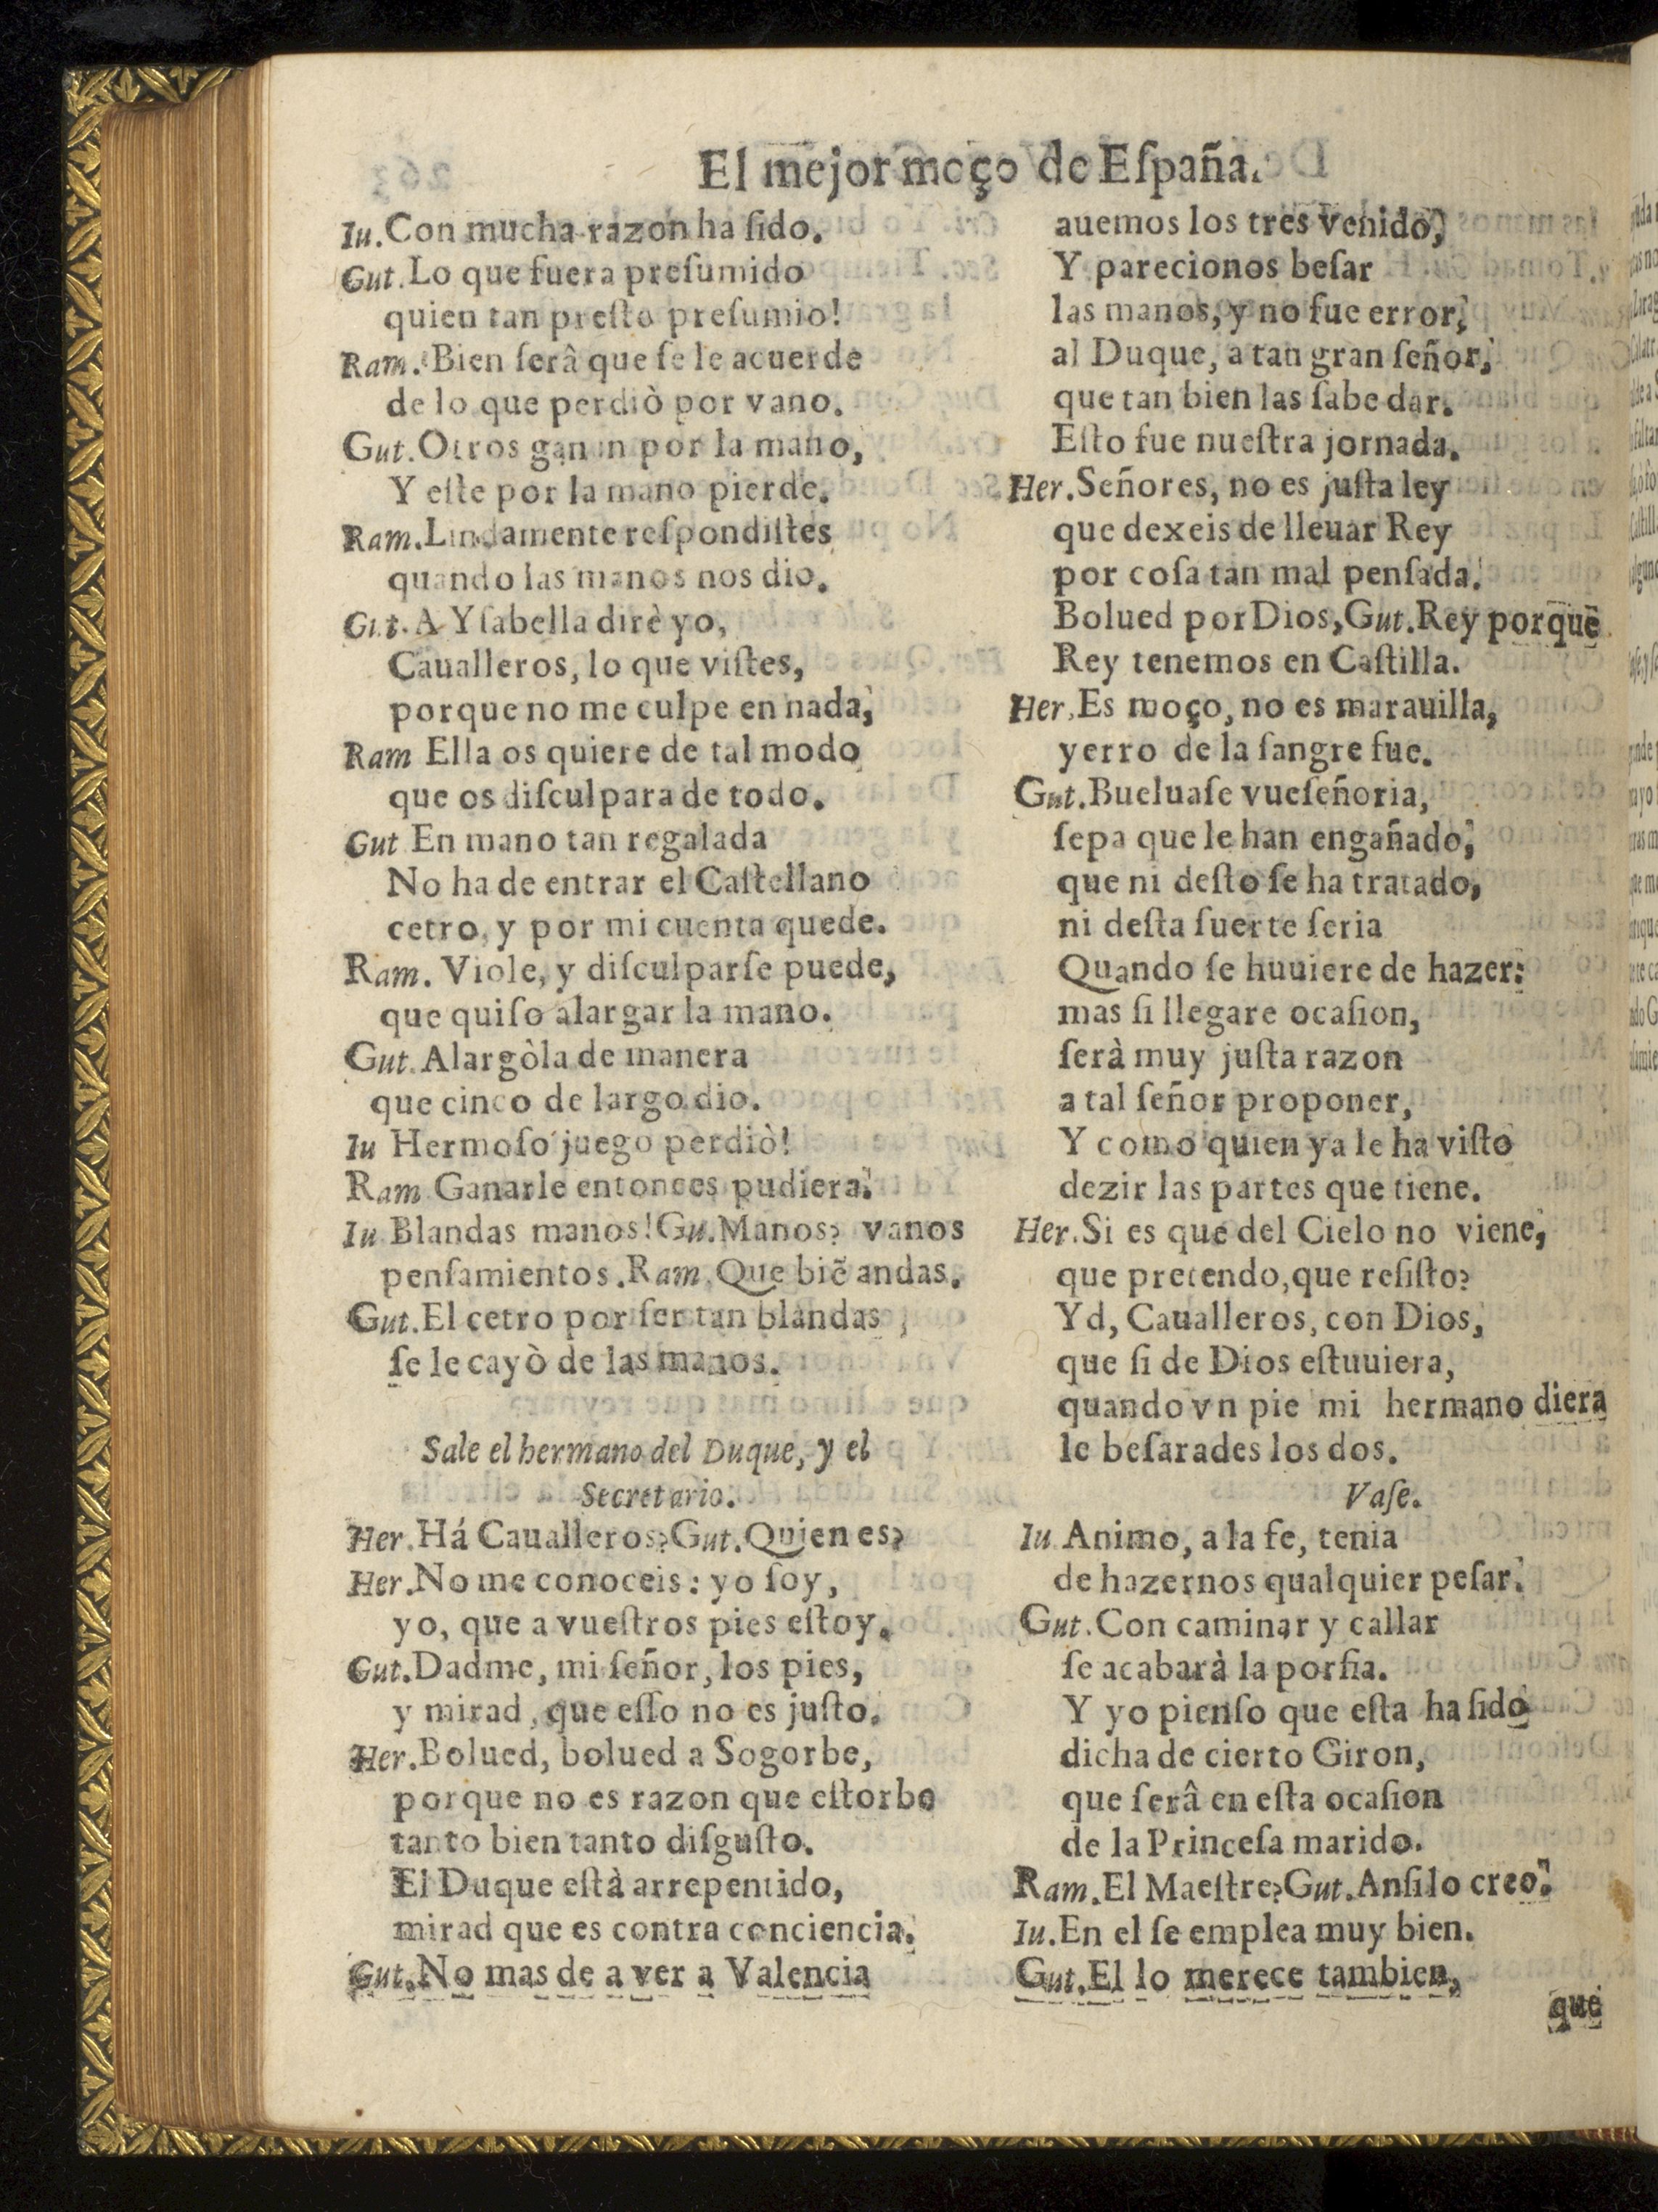 El mejor moço de Eſpaña.
Iu. Con mucha razon ha ſido.
Gut. Lo que fuera preſumido
quien tan preſto preſumio!
Ram. Bien ſerâ que ſe le acuerde
de lo que perdiò por vano.
Gut. Otros ganan por la mano,
Y eſte por la mano pierde.
Ram. Lindamente reſpondiſtes
quando las manos nos dio.
Gut. A Yſabella dirè yo,
Caualleros, lo que viſtes,
porque no me culpe en nada,
Ram Ella os quiere de tal modo
que os diſculpara de todo.
Gut En mano tan regalada
No ha de entrar el Caſtellano
cetro, y por mi cuenta quede.
Ram. Viole, y diſculparſe puede,
que quiſo alargar la mano.
Gut. Alargòla de manera
que cinco de largo dio.
Iu Hermoſo juego perdiò!
Ram Ganarle entonces pudiera.
Iu Blandas manos! Gu. Manos? vanos
penſamientos. Ram. Que biẽ andas.
Gut. El cetro por ſer tan blandas,
ſe le cayò de las manos.
Sale el hermano del Duque, y el
Secretario.
Her. Há Caualleros? Gut. Quien es?
Her. No me conoceis: yo ſoy,
yo, que a vueſtros pies eſtoy.
Gut. Dadme, mi ſeñor, los pies,
y mirad, que eſſo no es juſto.
Her. Bolued, bolued a Sogorbe,
porque no es razon que eſtorbe
tanto bien tanto diſguſto.
El Duque eſtà arrepentido,
mirad que es contra conciencia.
Gut. No mas de a ver a Valencia
auemos los tres venido,
Y parecionos beſar
las manos, y no fue error,
al Duque, a tan gran ſeñor,
que tan bien las ſabe dar.
Eſto fue nueſtra jornada.
Her. Señores, no es juſta ley
que dexeis de lleuar Rey
por coſa tan mal penſada.
Bolued por Dios, Gut. Rey porque
Rey tenemos en Caſtilla.
Her. Es moço, no es marauilla,
yerro de la ſangre fue.
Gut. Bueluaſe vueſeñoria,
ſepa que le han engañado,
que ni deſto ſe ha tratado,
ni deſta ſuerte ſeria
Quando ſe huuiere de hazer:
mas ſi llegare ocaſion,
ſerà muy juſta razon
a tal ſeñor proponer,
Y como quien ya le ha viſto
dezir las partes que tiene.
Her. Si es que del Cielo no viene,
que pretendo, que reſiſto?
Yd, Caualleros, con Dios,
que ſi de Dios eſtuuiera,
quando vn pie mi hermano diera
le beſarades los dos.
Vaſe.
Iu Animo, a la fe, tenia
de hazernos qualquier peſar.
Gut. Con caminar y callar
ſe acabarà la porfia.
Y yo pienſo que eſta ha ſido
dicha de cierto Giron,
que ſerâ en eſta ocaſion
de la Princeſa marido.
Ram. El Maeſtre? Gut. Anſi lo creo.
Iu. En el ſe emplea muy bien.
Gut. El lo merece tambien,
que